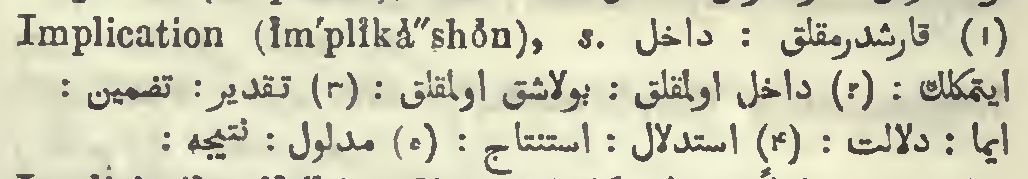 Implication (ĭm′plĭkả″shŏn), s. (۱) قارشدرمقلق : داخل
ایتمکلك : (۲) داخل اولمقلق : بولاشق اولمقلق : (۳) تقدیر : تضمین :
ایما : دلالت : (۴) استدلال : استنتاج : (۵) مدلول : نتیجه :